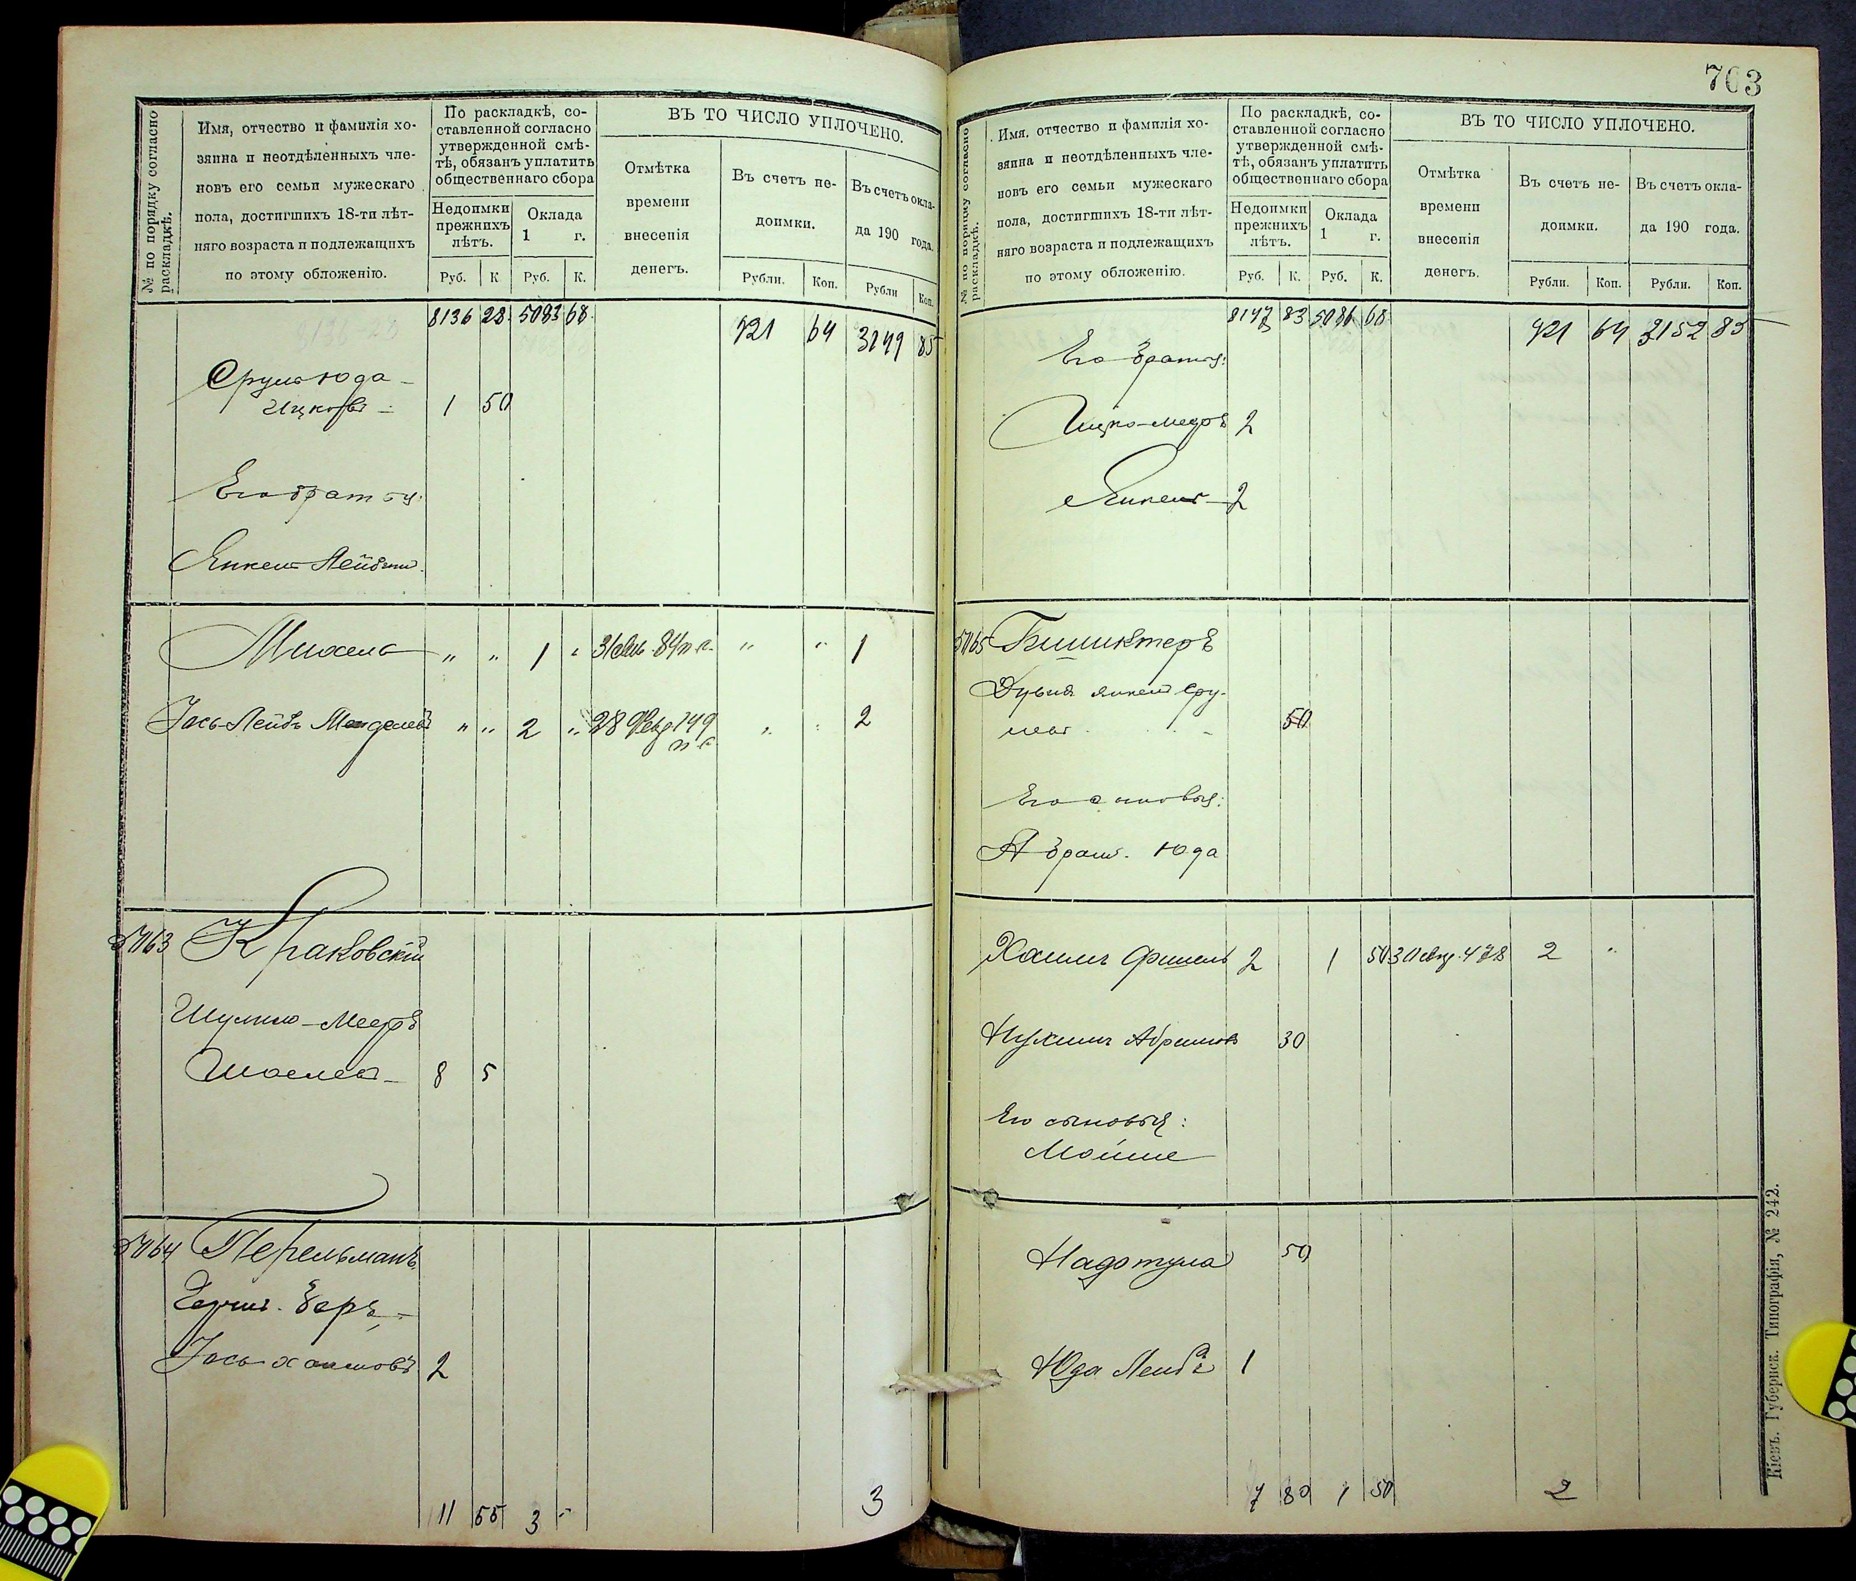 703
№ по порядку согласно раскладкѣ.
Имя, отчество и фамилія хо-
зяина и неотдѣленныхъ чле-
новъ его семьи мужескаго
пола, достигшихъ 18-ти лѣт-
няго возраста и подлежащихъ
по этому обложенію.
По раскладкѣ, со-
ставленной согласно
утвержденной смѣ-
тѣ, обязанъ уплатить
общественнаго сбора
Недоимки
прежнихъ
лѣтъ.
Оклада
1 г.
Руб. К. Руб. К.
ВЪ ТО ЧИСЛО УПЛОЧЕНО.
Отмѣтка
времени
внесенія
денегъ.
Въ счетъ не-
доимки.
Въ счетъ окла-
да 190 года.
Рубли. Коп. Рубли Коп.
8136 28 5083 68 921 64 3149 85
Срулъ Юда
Ицковъ 1 50
Его братья:
Янкель Лейбиш
Михель " " 1 " 31 84 п. с. " " 1
Іось-Лейбъ Менделевъ " " 2 " 28 Февр 149 п с 2
5763 Краковскій
Шулимъ-Мееръ
8 5
5764 Перельманъ
Беръ
Іось Хаимовъ 2
11 55 3 - 3
№ по порядку согласно раскладкѣ.
Имя, отчество и фамилія хо-
зяина и неотдѣленныхъ чле-
новъ его семьи мужескаго
пола, достигшихъ 18-ти лѣт-
няго возраста и подлежащихъ
по этому обложенію.
По раскладкѣ, со-
ставленной согласно
утвержденной смѣ-
тѣ, обязанъ уплатить
общественнаго сбора
Недоимки
прежнихъ
лѣтъ.
Оклада
1 г.
Руб. К. Руб. К.
ВЪ ТО ЧИСЛО УПЛОЧЕНО.
Отмѣтка
времени
внесенія
денегъ.
Въ счетъ не-
доимки.
Въ счетъ окла-
да 190 года.
Рубли. Коп. Рубли. Коп.
8147 83 5086 68 921 64 3152 85
Его братья:
Ицко-Мееръ 2
Янкель 2
5765
Янкель Сру-
50
Его сыновья:
Абрам. Юда
Хаимъ Фишель 2 1 50 30 478 2 "
Нухимъ Абрамовъ 30
Его сыновья:
Мойше
50
Юда Лейбъ 1
7 80 1 50 2
Кіевъ. Губернск. Типографія, № 242.